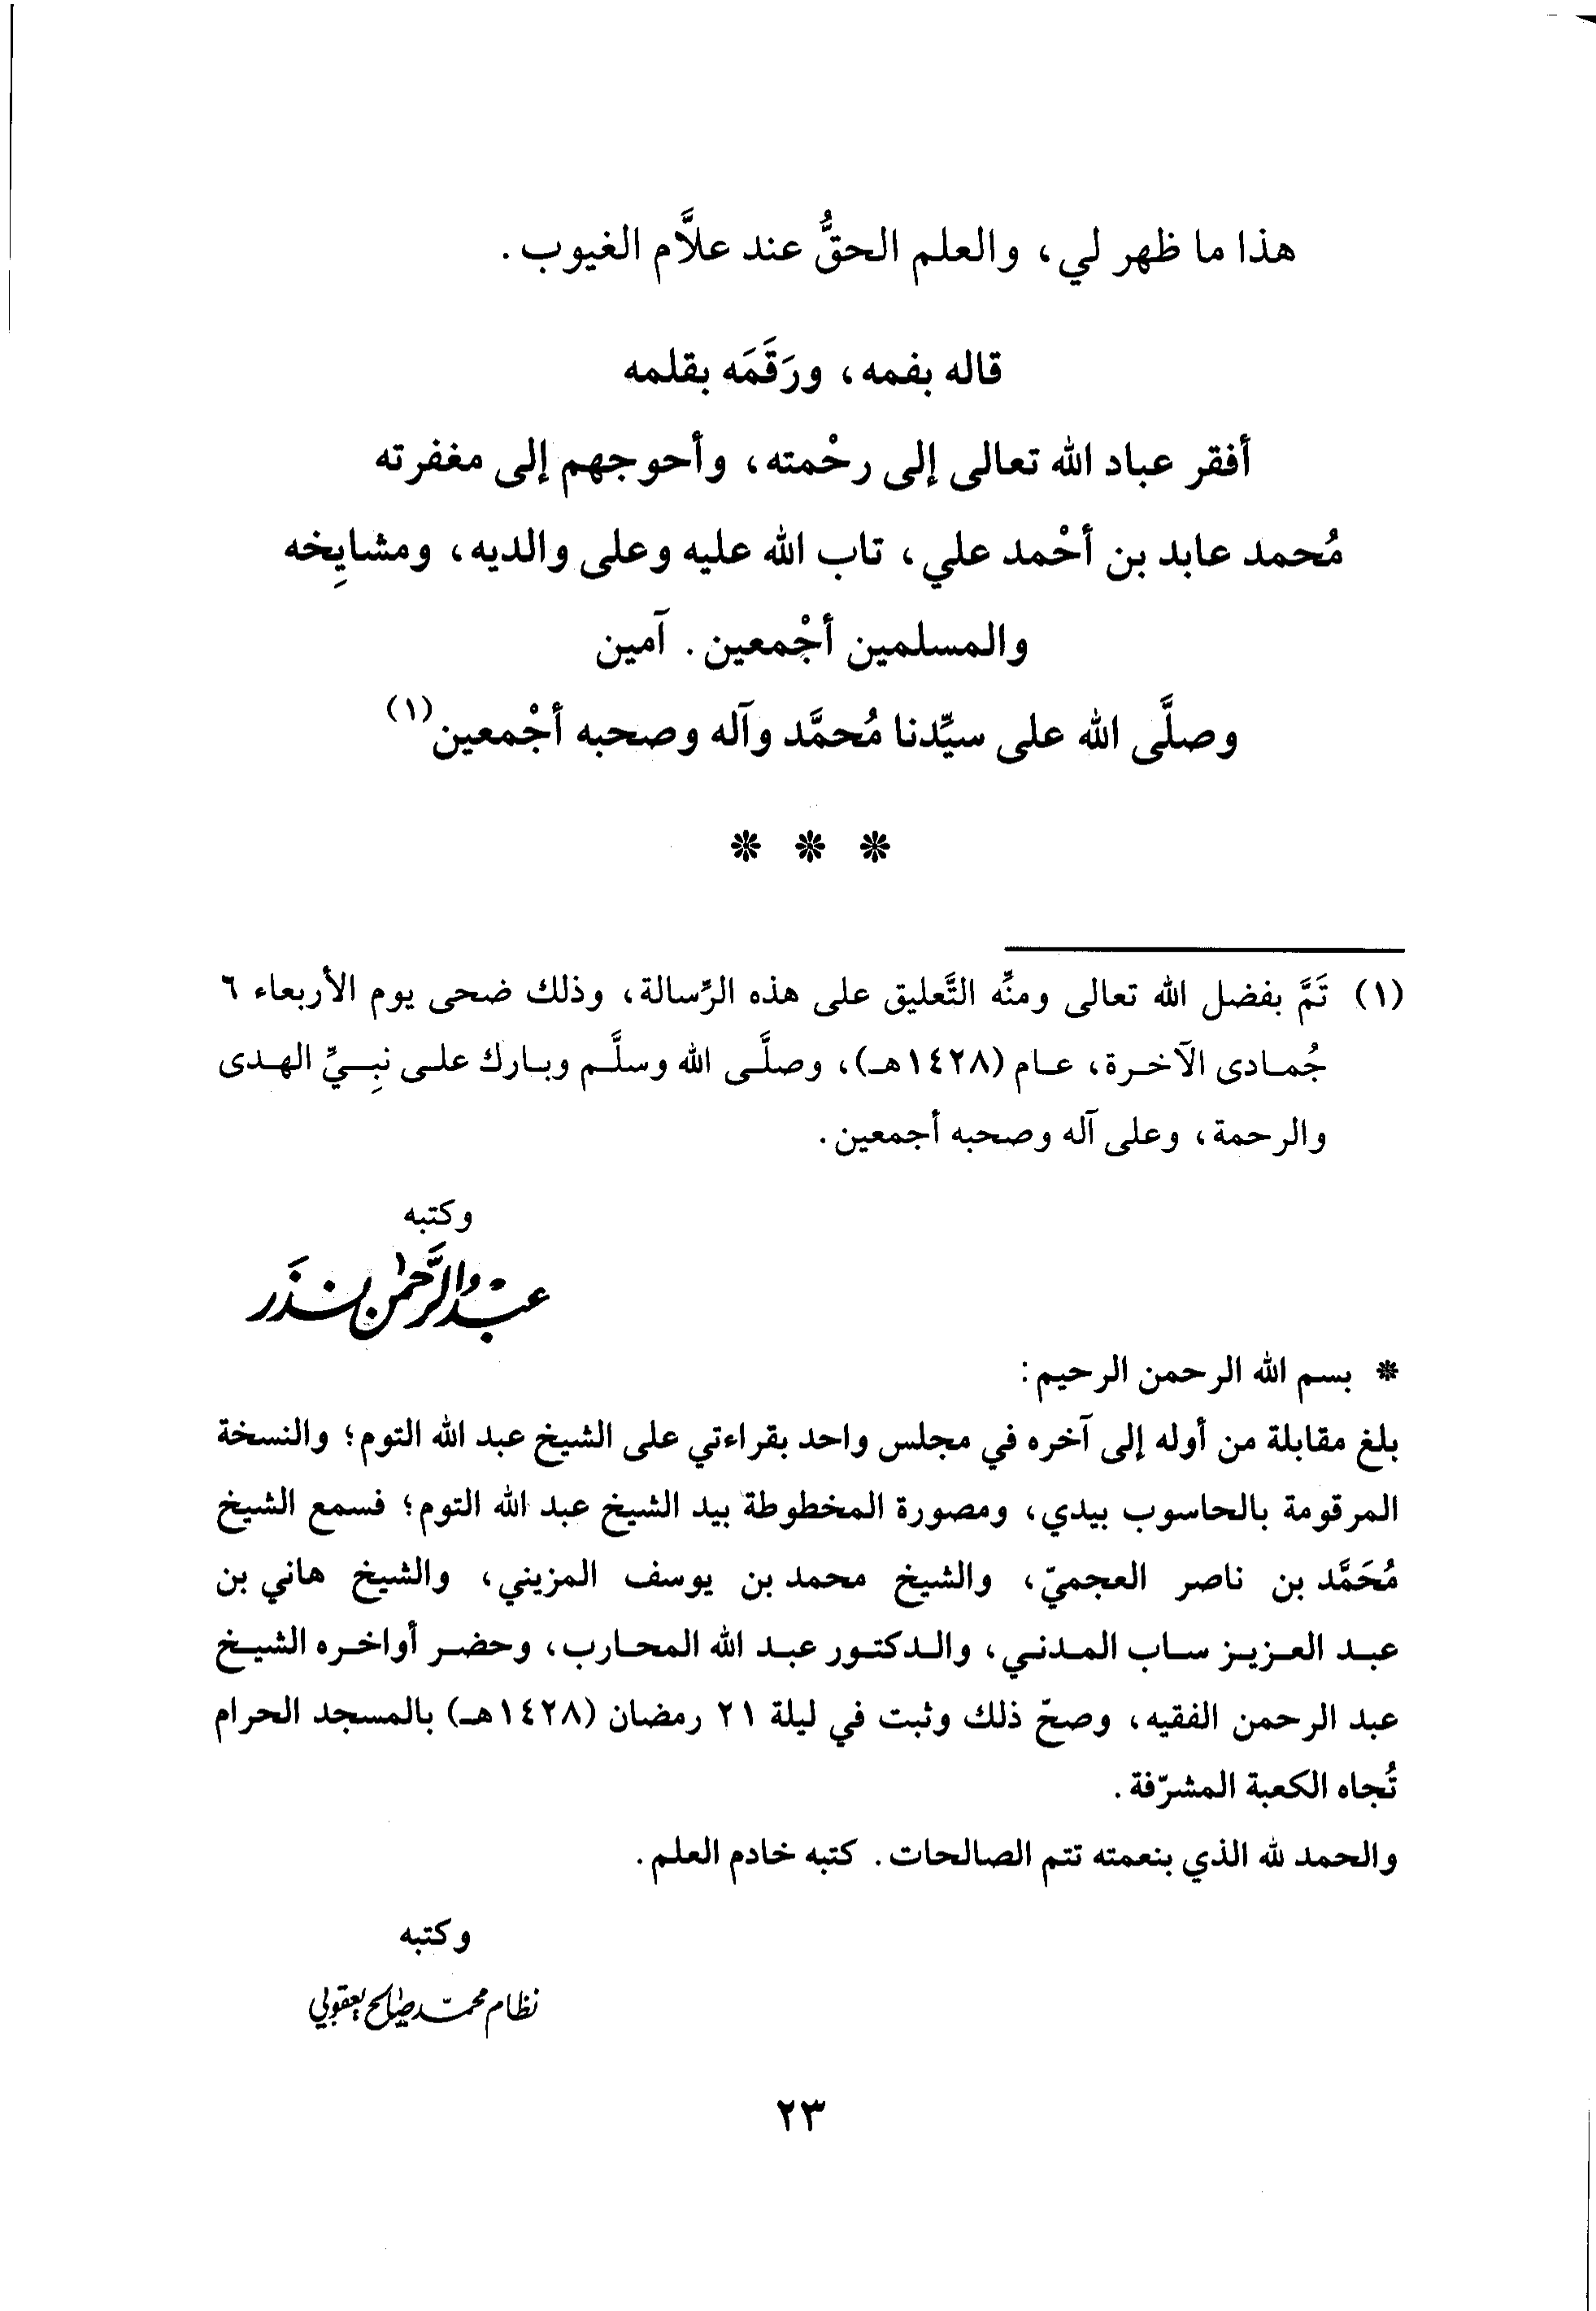 هذا ما ظهر لي، والعلم الحقُّ عند علاَّم الغيوب.
قاله بفمه، ورَقَمَه بقلمه
أفقر عباد الله تعالى إلى رحْمته، وأحوجهم إلى مغفرته
مُحمد عابد بن أحْمد علي، تاب الله عليه وعلى والديه، ومشايِخه
والمسلمين أجْمعين. آمين
وصلَّى الله على سيِّدنا مُحمَّد وآله وصحبه أجْمعين(١)
* * *
(١) تَمَّ بفضل الله تعالى ومنِّه التَّعليق على هذه الرِّسالة، وذلك ضحى يوم الأربعاء ٦
جُمـادى الآخـرة، عـام (١٤٢٨هـ)، وصلَّـى الله وسلَّـم وبـارك علـى نبِـيِّ الهـدى
والرحمة، وعلى آله وصحبه أجمعين.
وكتبه
عَبْدُ الرَّحمٰن بَنذَر
* بسم الله الرحمن الرحيم:
بلغ مقابلة من أوله إلى آخره في مجلس واحد بقراءتي على الشيخ عبد الله التوم؛ والنسخة
المرقومة بالحاسوب بيدي، ومصورة المخطوطة بيد الشيخ عبد الله التوم؛ فسمع الشيخ
مُحَمَّد بن ناصر العجميّ، والشيخ محمد بن يوسف المزيني، والشيخ هاني بن
عبـد العـزيـز سـاب المـدنـي، والـدكتـور عبـد الله المحـارب، وحضـر أواخـره الشيـخ
عبد الرحمن الفقيه، وصحّ ذلك وثبت في ليلة ٢١ رمضان (١٤٢٨هـ) بالمسجد الحرام
تُجاه الكعبة المشرّفة.
والحمد لله الذي بنعمته تتم الصالحات. كتبه خادم العلم.
وكتبه
نظام محمّد صالح يعقوبي
٢٣